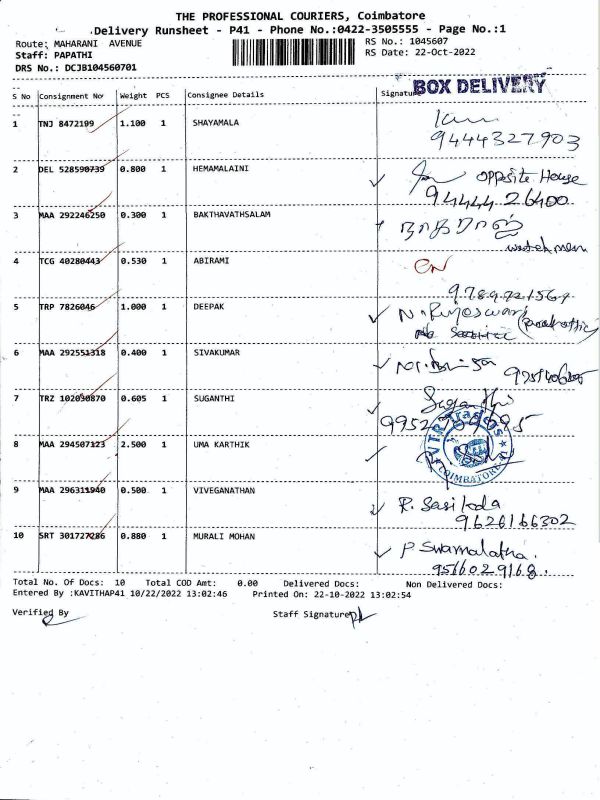 THE PROFESSIONAL COURIERS, Coimbatore
Delivery Runsheet - P41 - Phone No.:0422-3505555 - Page No.:1
Route: MAHARANI AVENUE RS No.: 1045607
Staff: PAPATHI RS Date: 22-Oct-2022
DRS No.: DCJB104560701
BOX DELIVERY
S No Consignment No Weight PCS Consignee Details Signature
1 TNJ 8472199 1.100 1 SHAYAMALA
9444327903
2 DEL 528590739 0.800 1 HEMAMALAINI opposite House
94444 26400
3 MAA 292246250 0.300 1 BAKTHAVATHSALAM நாகராஜ்
watch men
4 TCG 40280443 0.530 1 ABIRAMI
5 TRP 7826046 1.000 1 DEEPAK N. Rajeswari
6 MAA 292551318 0.400 1 SIVAKUMAR
7 TRZ 102030870 0.605 1 SUGANTHI Suganthi
8 MAA 294507123 2.500 1 UMA KARTHIK
VTR Traders COIMBATORE
9 MAA 296311940 0.500 1 VIVEGANATHAN R. Sasikala
9626166302
10 SRT 301727286 0.880 1 MURALI MOHAN P Swarnalatha.
9566029168.
Total No. Of Docs: 10 Total COD Amt: 0.00 Delivered Docs: Non Delivered Docs:
Entered By :KAVITHAP41 10/22/2022 13:02:46 Printed On: 22-10-2022 13:02:54
Verified By Staff Signature